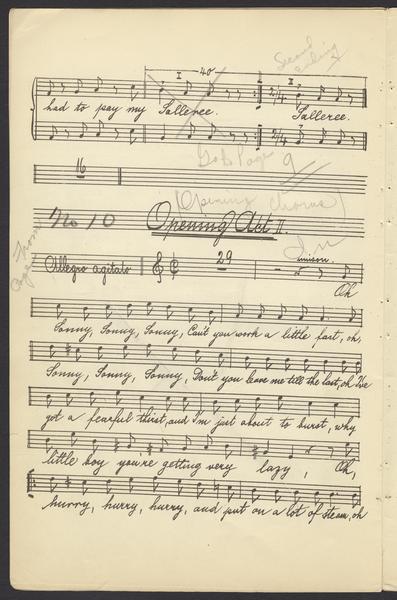 I - 40 I
Second ending
had to pay my Salleree. Salleree.
2/4
2/4
Go to Page 9
16
(Opening Chorus)
No 10 Opening Act II.
From
Allegro agitato 29 unison.
Oh
Sonny, Sonny, Sonny, Can't you work a little fast, oh,
Sonny, Sonny, Sonny, Don't you leave me till the last, oh I've
got a fearful thirst, and I'm just about to burst, why
little boy you're getting very lazy, Oh,
hurry, hurry, hurry, and put on a lot of steam, oh